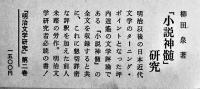 柳田泉著
『小説神髄』研究
明治以後の日本近代
文学のターニング・
ポイントとなった坪
内逍遙の文学理論で
ある『小説神髄』の
全文を収録すると共
に、これに懇切詳密
な評釈を加えた前人
未踏の労作。明治文
学研究者必読の書!
『明治文学研究』第二巻
一八〇〇円